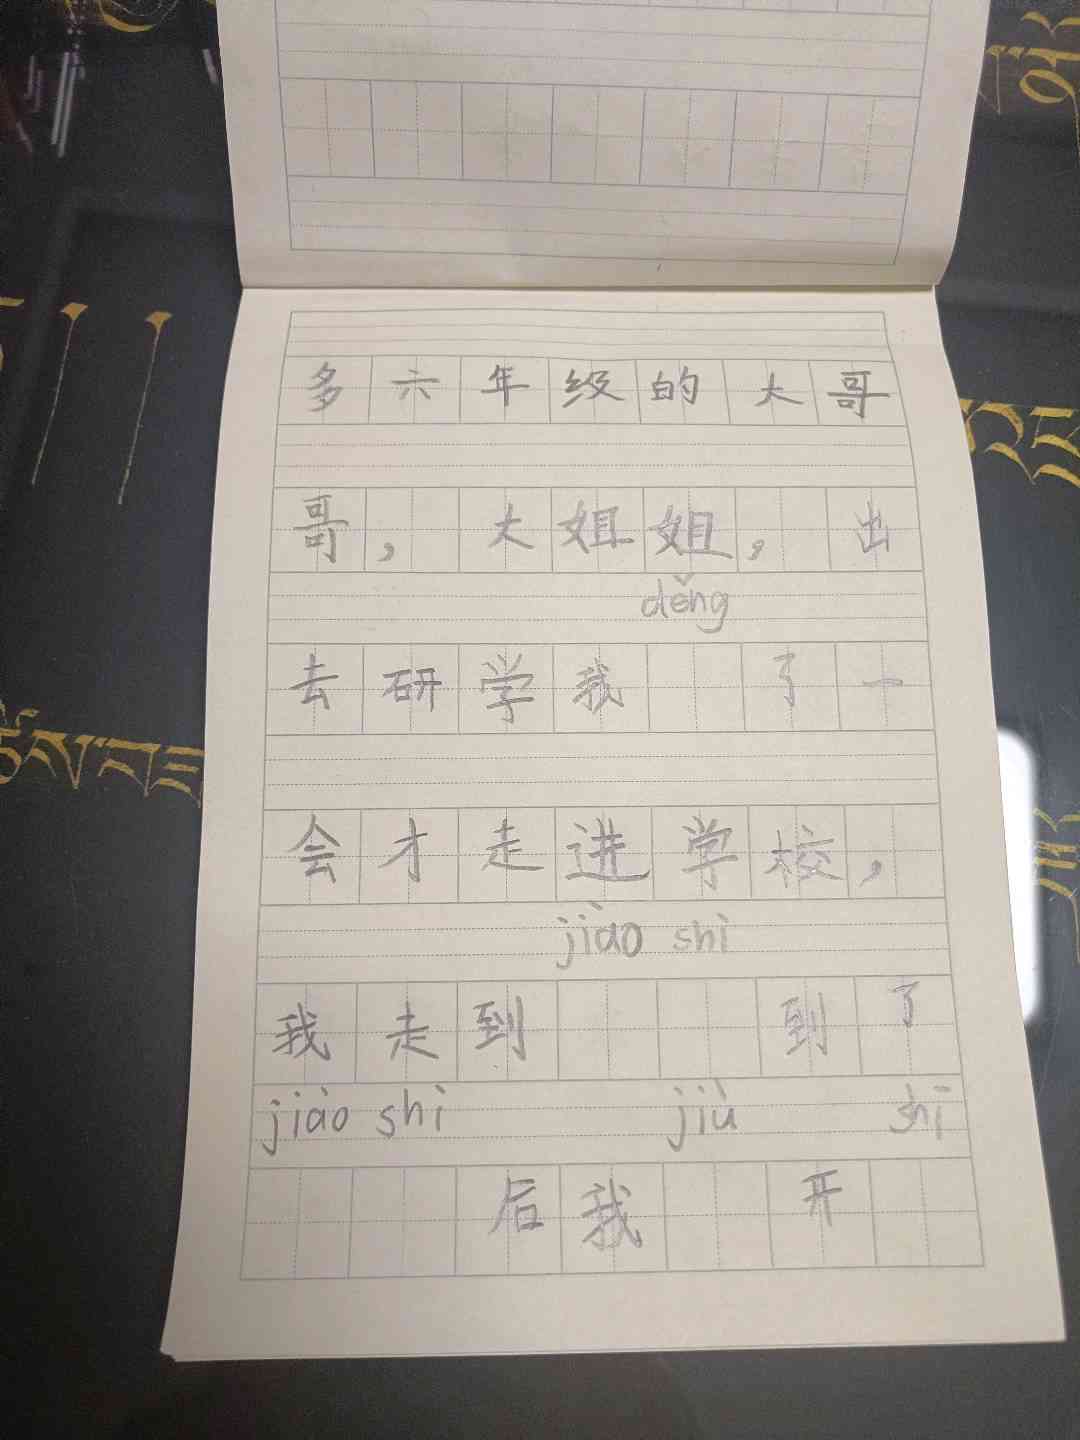 多六年级的大哥
哥，大姐姐，出
děng
去研学我 了一
会才走进学校，
jiào shì
我走到 到了
jiào shì jiù shǐ
后我 开